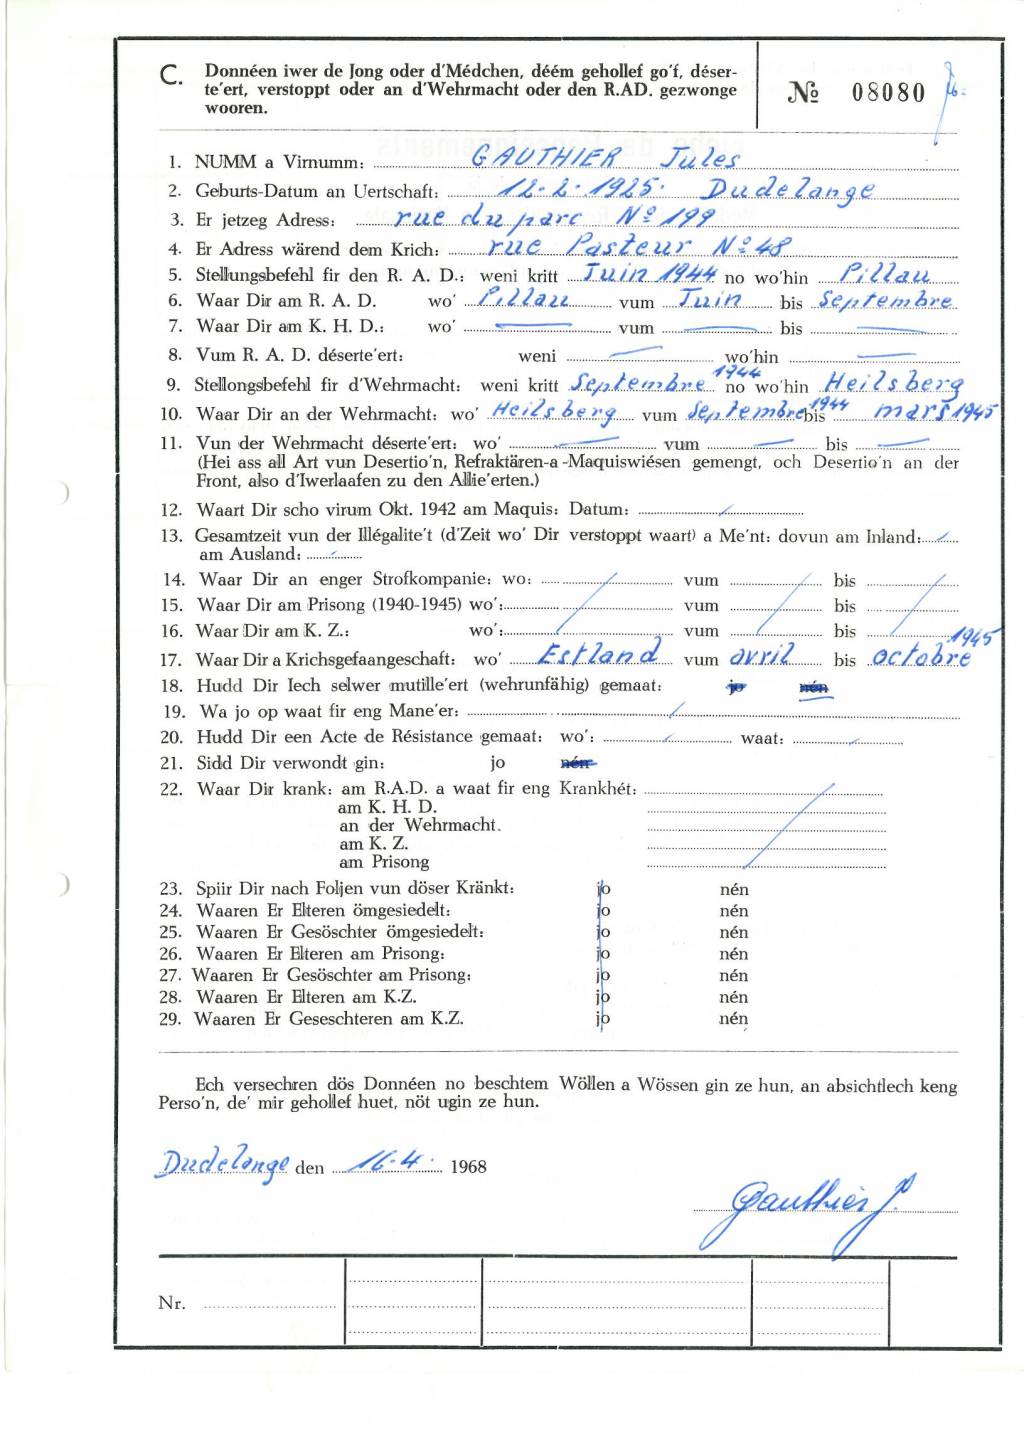 C. Donnéen iwer de Jong oder d'Médchen, déém gehollef go'f, déser-
te'ert, verstoppt oder an d'Wehrmacht oder den R.AD. gezwonge
wooren.
№ 08080
1. NUMM a Virnumm: GAUTHIER Jules
2. Geburts-Datum an Uertschaft: 12-2-1925. Dudelange
3. Er jetzeg Adress: rue du parc N° 199
4. Er Adress wärend dem Krich: rue Pasteur N° 48
5. Stellungsbefehl fir den R. A. D.: weni kritt Juin 1944 no wo'hin Pillau
6. Waar Dir am R. A. D. wo' Pillau vum Juin bis Septembre
7. Waar Dir am K. H. D.: wo' vum bis
8. Vum R. A. D. déserte'ert: weni wo'hin
9. Stellongsbefehl fir d'Wehrmacht: weni kritt Septembre 1944 no wo'hin Heilsberg
10. Waar Dir an der Wehrmacht: wo' Heilsberg vum Septembre 1944 bis mars 1945
11. Vun der Wehrmacht déserte'ert: wo' vum bis
(Hei ass all Art vun Desertio'n, Refraktären-a-Maquiswiésen gemengt, och Desertio'n an der
Front, also d'Iwerlaafen zu den Allie'erten.)
12. Waart Dir scho virum Okt. 1942 am Maquis: Datum:
13. Gesamtzeit vun der Illégalite't (d'Zeit wo' Dir verstoppt waart) a Me'nt: dovun am Inland:
am Ausland:
14. Waar Dir an enger Strofkompanie: wo: vum bis
15. Waar Dir am Prisong (1940-1945) wo': vum bis
16. Waar Dir am K. Z.: wo': vum bis
17. Waar Dir a Krichsgefaangeschaft: wo' Estland vum avril bis octobre 1945
18. Hudd Dir Iech selwer mutille'ert (wehrunfähig) gemaat: jo nén
19. Wa jo op waat fir eng Mane'er:
20. Hudd Dir een Acte de Résistance gemaat: wo': waat:
21. Sidd Dir verwondt gin: jo nén
22. Waar Dir krank: am R.A.D. a waat fir eng Krankhét:
am K. H. D.
an der Wehrmacht.
am K. Z.
am Prisong
23. Spiir Dir nach Foljen vun döser Kränkt: jo nén
24. Waaren Er Elteren ömgesiedelt: jo nén
25. Waaren Er Gesöschter ömgesiedelt: jo nén
26. Waaren Er Elteren am Prisong: jo nén
27. Waaren Er Gesöschter am Prisong: jo nén
28. Waaren Er Elteren am K.Z. jo nén
29. Waaren Er Geseschteren am K.Z. jo nén
Ech versechren dös Donnéen no beschtem Wöllen a Wössen gin ze hun, an absichtlech keng
Perso'n, de' mir gehollef huet, nöt ugin ze hun.
Dudelange den 16-4. 1968
Gauthier J.
Nr.